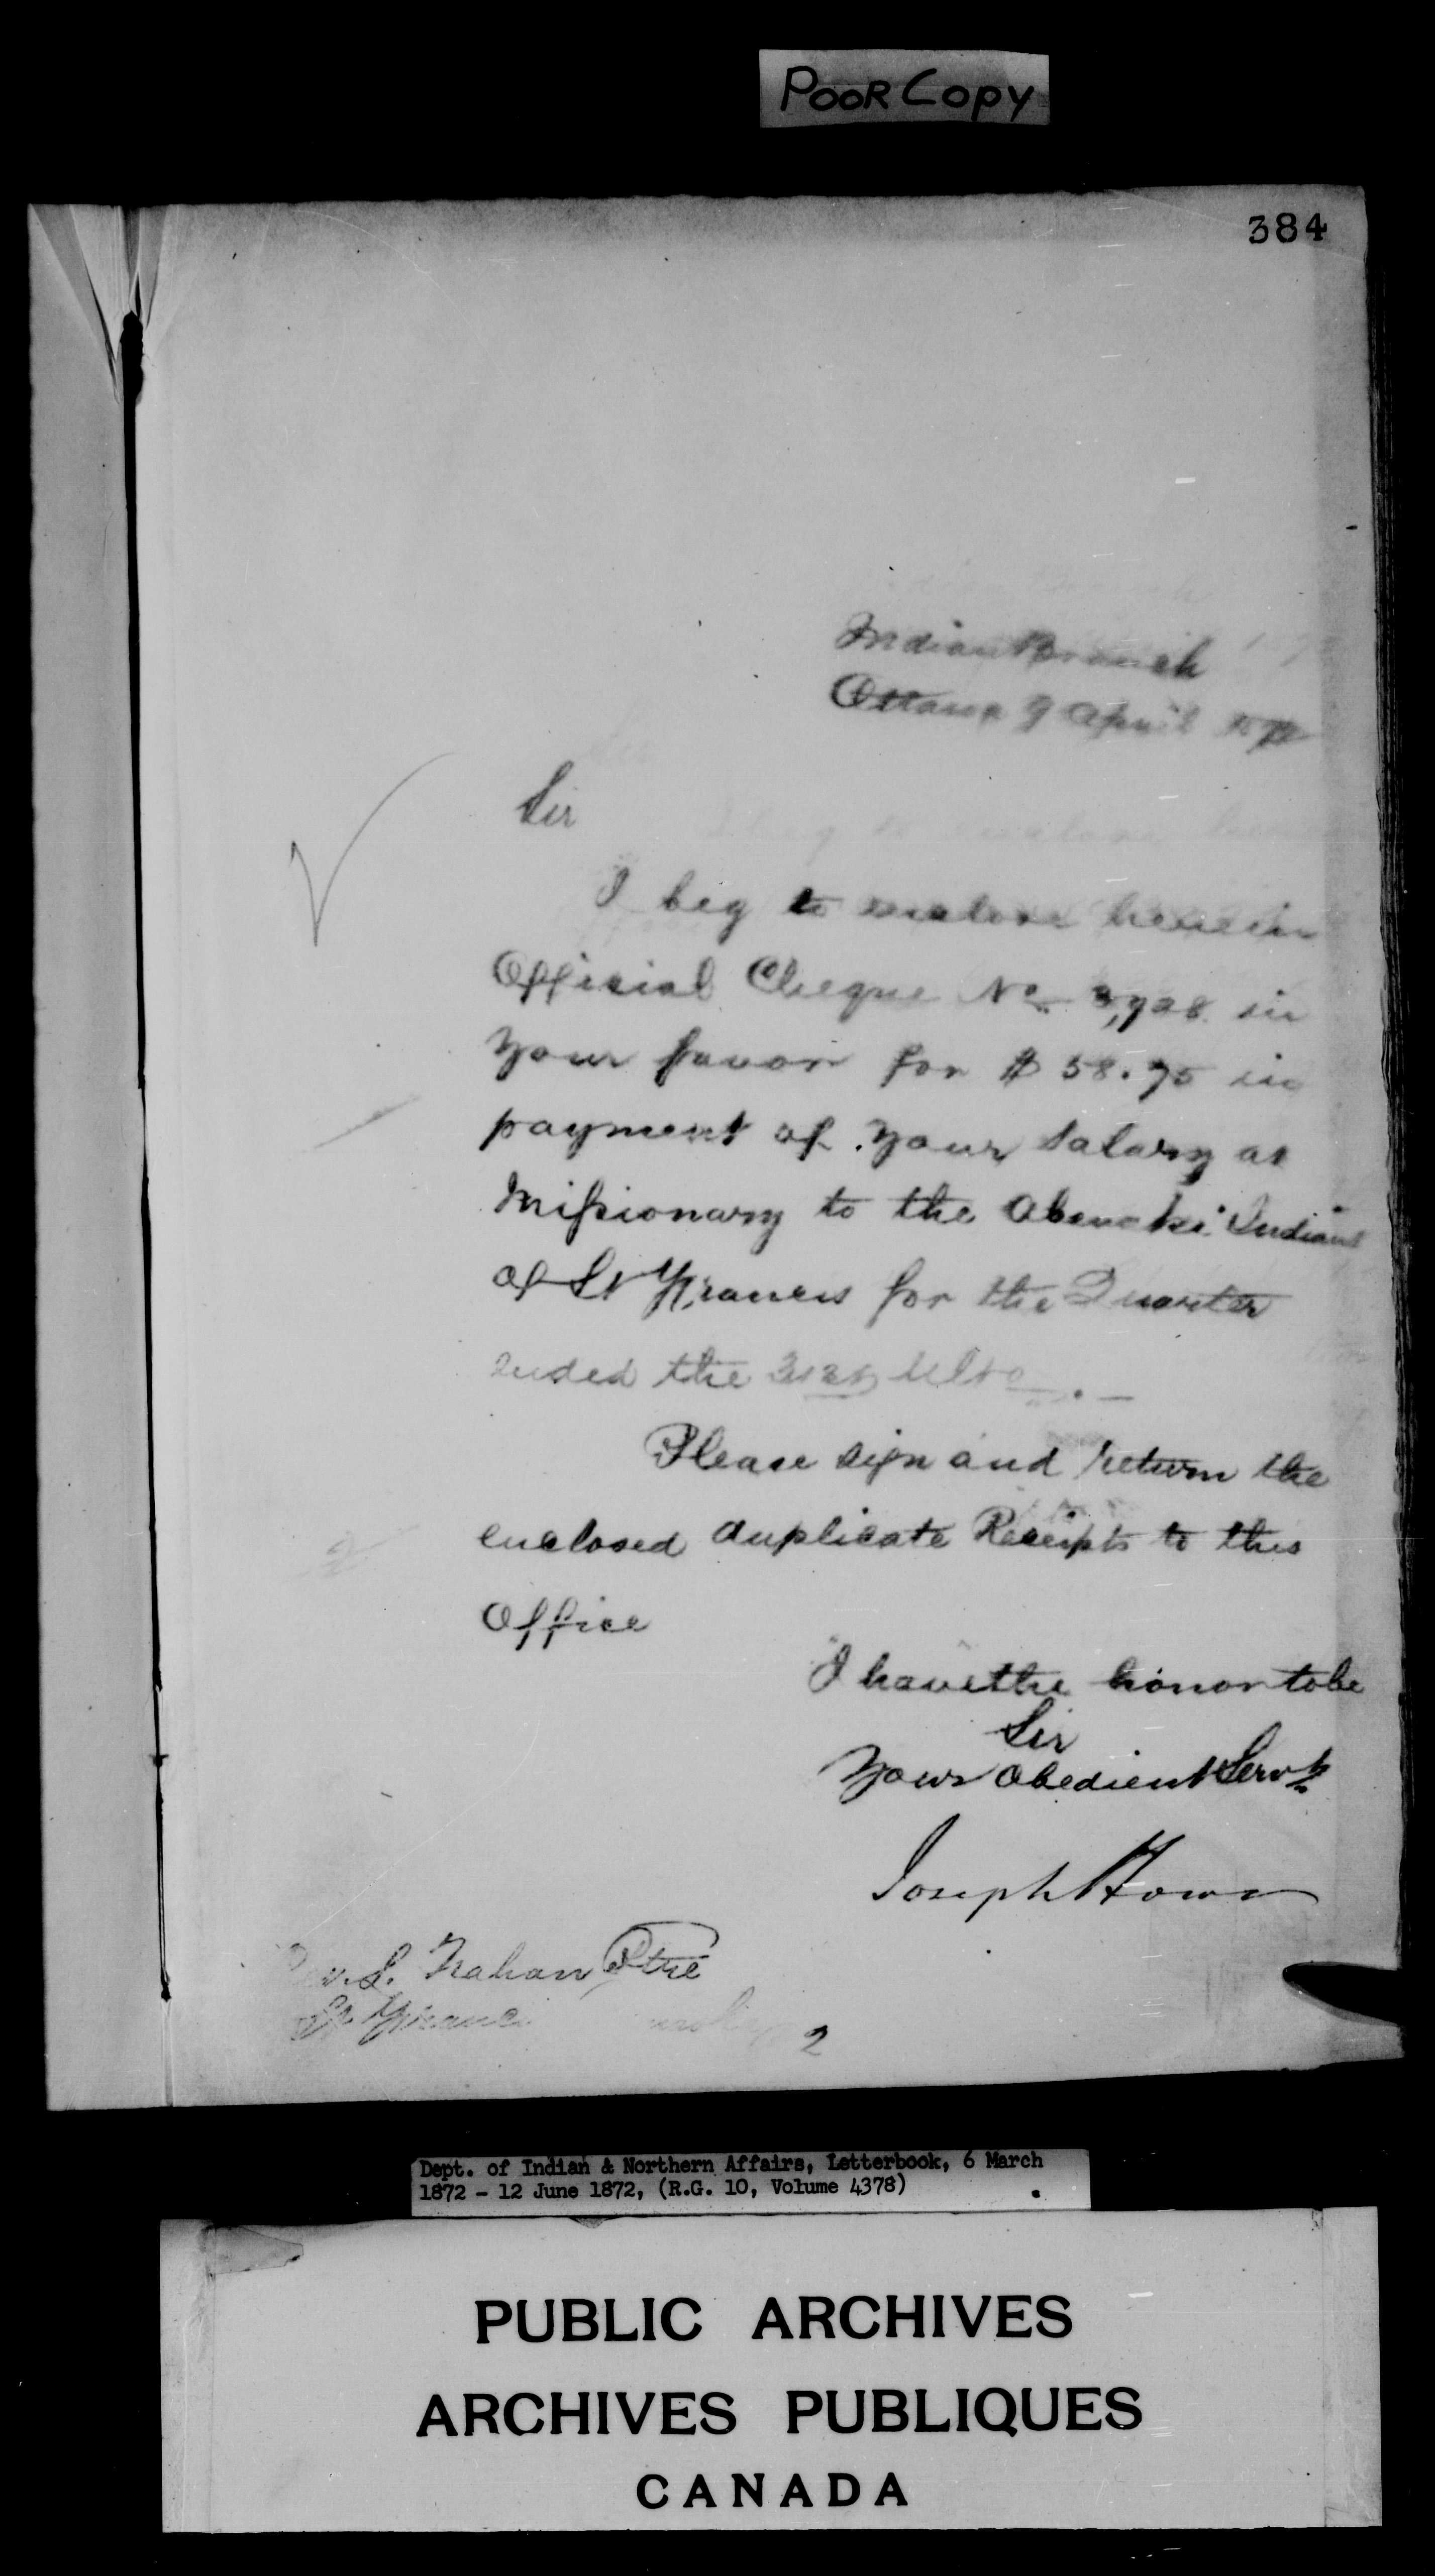 POOR COPY
384
Indian Branch
Ottawa 9 April
Sir
I beg to enclose herein
Official Cheque No 3,928 in
your favor for $ 58.75 in
payment of your salary as
Missionary to the Abenaki Indians
of St Francis for the Quarter
ended the 31st Ulto. —
Please sign and return the
enclosed duplicate Receipts to this
Office
I have the honor to be
Sir
Your Obedient Servt
Joseph Howe
Rev. L. Trahan Ptre
St Francis
2
Dept. of Indian & Northern Affairs, Letterbook, 6 March
1872 - 12 June 1872, (R.G. 10, Volume 4378)
PUBLIC ARCHIVES
ARCHIVES PUBLIQUES
CANADA